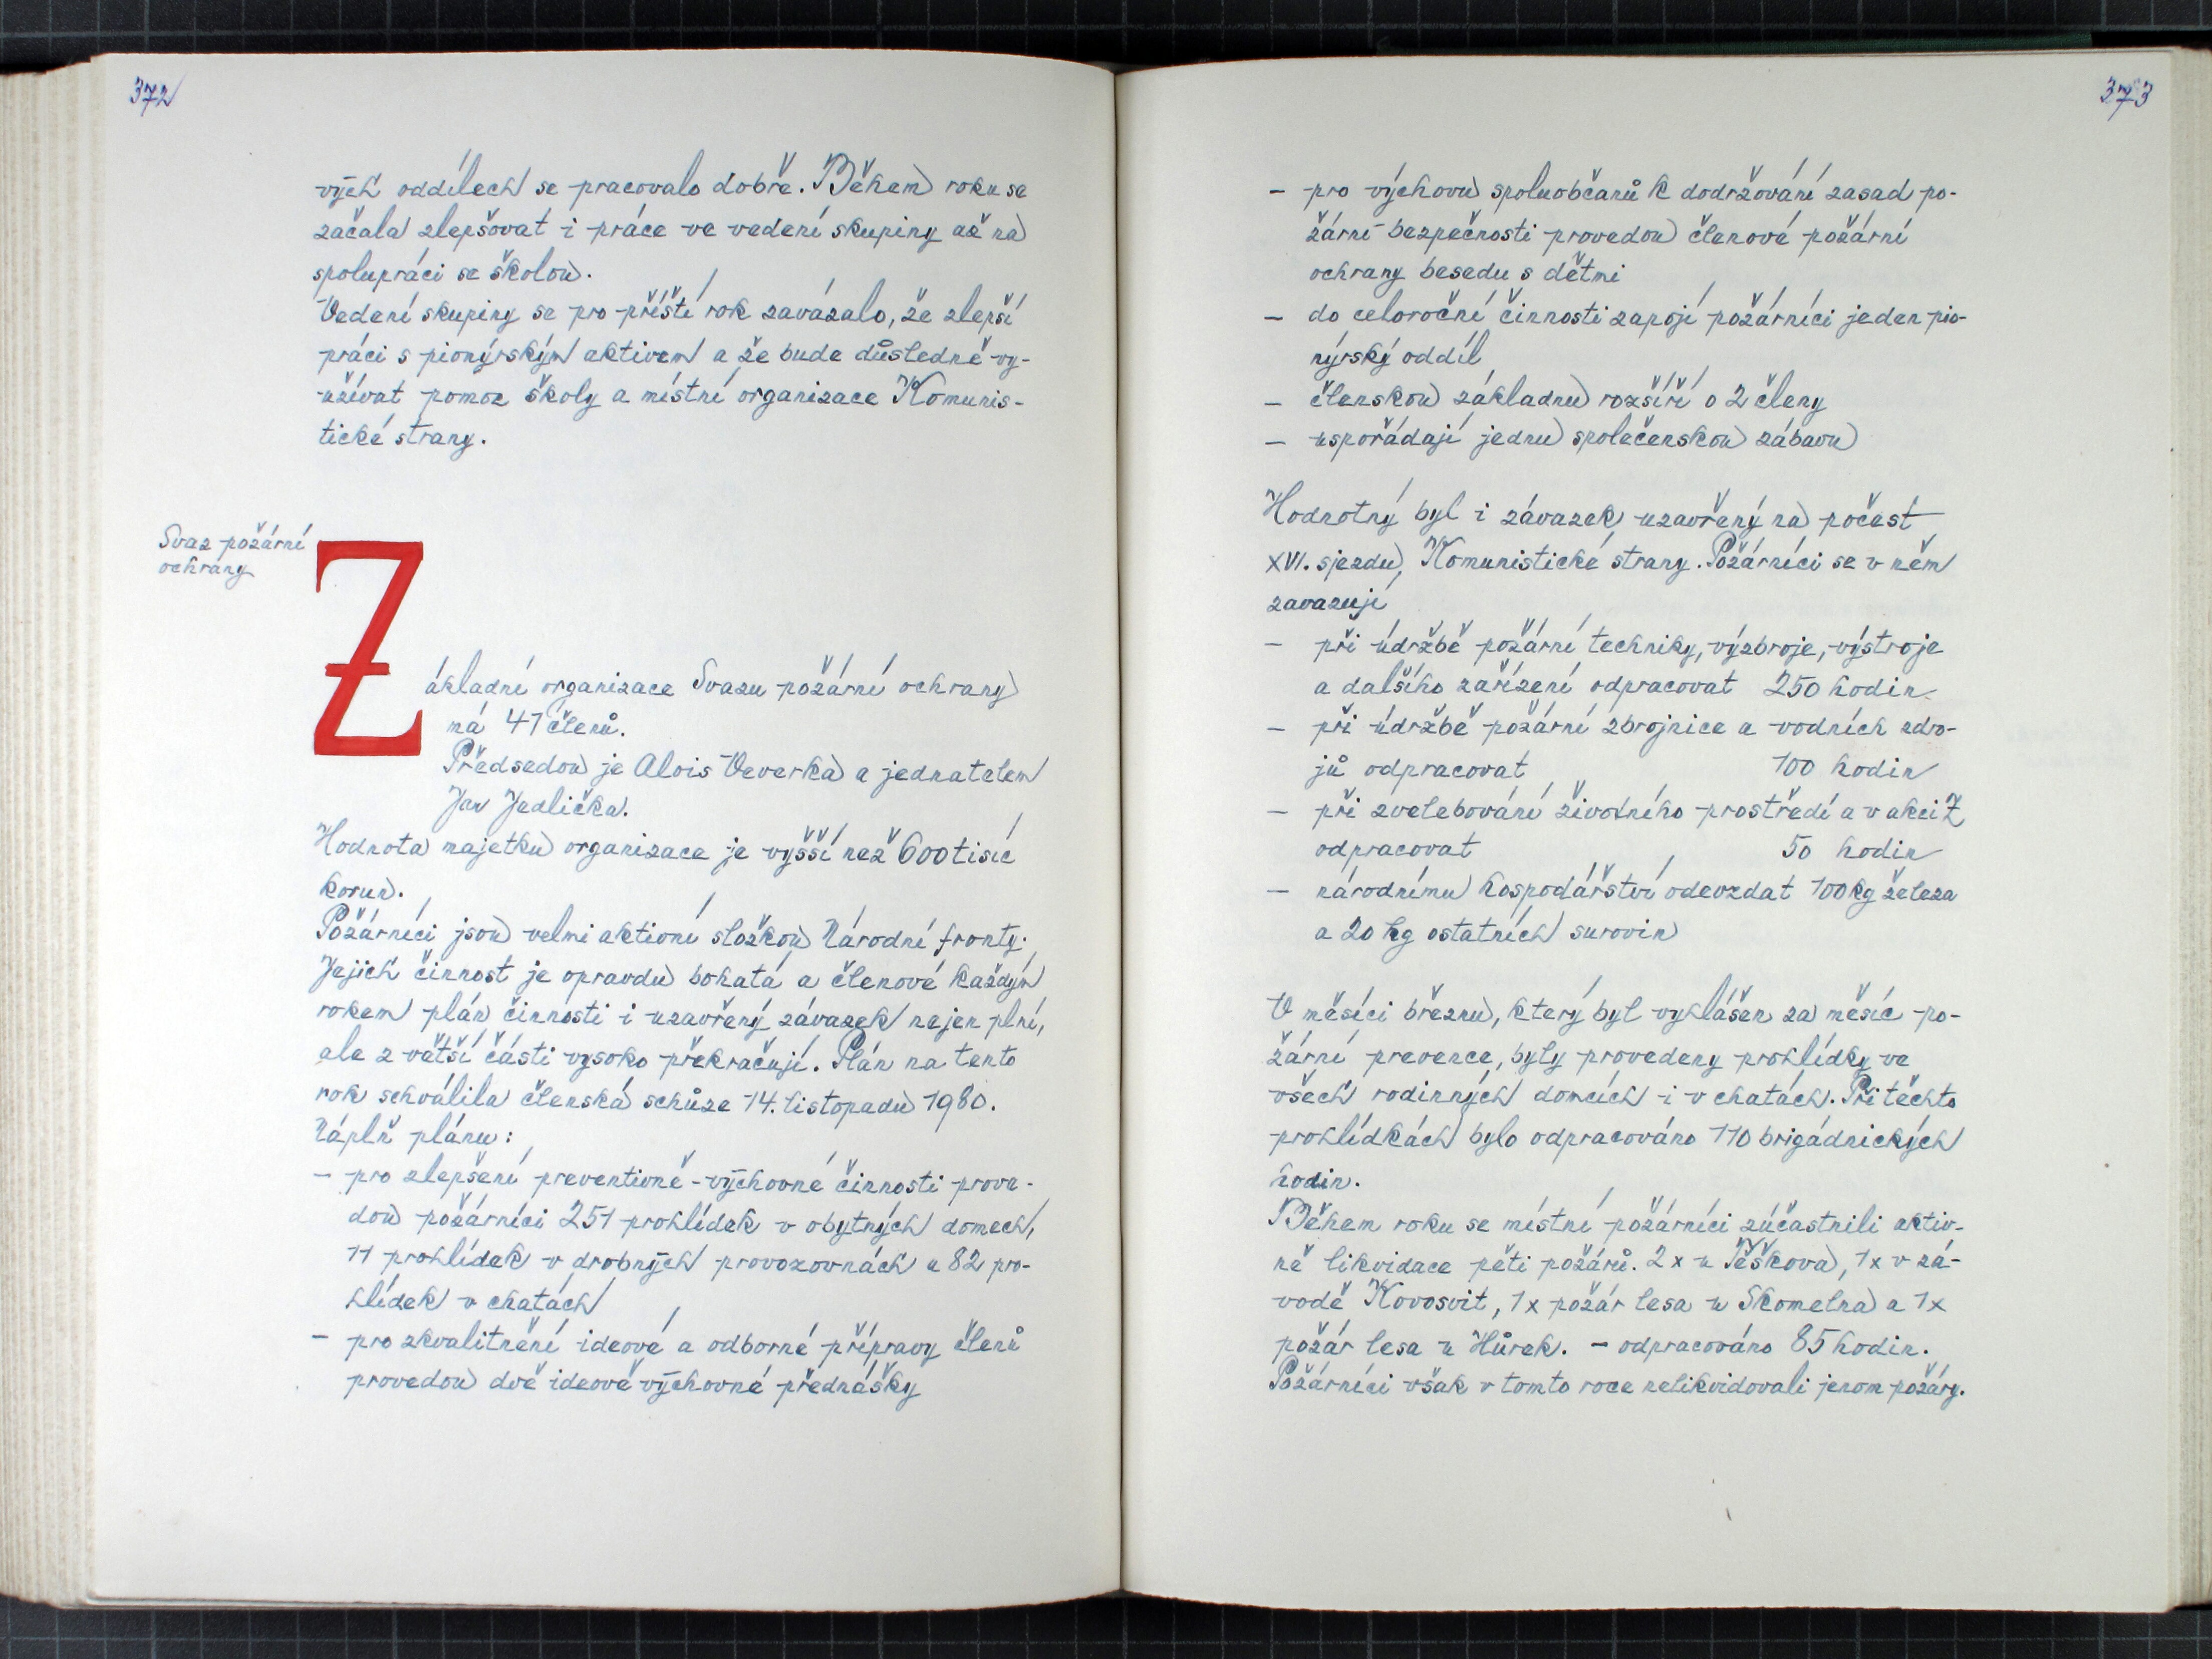 372
vých oddílech se pracovalo dobře. Během roku se
začala zlepšovat i práce ve vedení skupiny až na
spolupráci se školou.
Vedení skupiny se pro příští rok zavázalo, že zlepší
práci s pionýrským aktivem a že bude důsledně vy-
užívat pomoc školy a místní organizace Komunis-
tické strany.
Svaz požární
ochrany
Základní organizace Svazu požární ochrany
má 41 členů.
Předsedou je Alois Veverka a jednatelem
Jan Jedlička.
Hodnota majetku organizace je vyšší než 600 tisíc
korun.
Požárníci jsou velmi aktivní složkou Národní fronty.
Jejich činnost je opravdu bohatá a členové každým
rokem plán činnosti i uzavřený závazek nejen plní,
ale z větší části vysoko překračují. Plán na tento
rok schválila členská schůze 14. listopadu 1980.
Náplň plánu:
- pro zlepšení preventivně-výchovné činnosti prove-
dou požárníci 251 prohlídek v obytných domech,
11 prohlídek v drobných provozovnách a 82 pro-
hlídek v chatách
- pro zkvalitnění ideové a odborné přípravy členů
provedou dvě ideově výchovné přednášky
373
- pro výchovu spoluobčanů k dodržování zasad po-
žární bezpečnosti provedou členové požární
ochrany besedu s dětmi
- do celoroční činnosti zapojí požárníci jeden pio-
nýrský oddíl
- členskou základnu rozšíří o 2 členy
- uspořádají jednu společenskou zábavu
Hodnotný byl i závazek uzavřený na počest
XVI. sjezdu Komunistické strany. Požárníci se v něm
zavazují
- při údržbě požární techniky, výzbroje, výstroje
a dalšího zařízení odpracovat 250 hodin
- při údržbě požární zbrojnice a vodních zdro-
jů odpracovat 100 hodin
- při zvelebování životního prostředí a v akci Z
odpracovat 50 hodin
- národnímu hospodářství odevzdat 100 kg železa
a 20 kg ostatních surovin
V měsíci březnu, který byl vyhlášen za měsíc po-
žární prevence, byly provedeny prohlídky ve
všech rodinných domcích i v chatách. Při těchto
prohlídkách bylo odpracováno 110 brigádnických
hodin.
Během roku se místní požárníci zúčastnili aktiv-
ně likvidace pěti požárů. 2x u Těškova, 1x v zá-
vodě Kovosvit, 1x požár lesa u Skomelna a 1x
požár lesa u Hůrek. - odpracováno 85 hodin.
Požárníci však v tomto roce nelikvidovali jenom požáry.